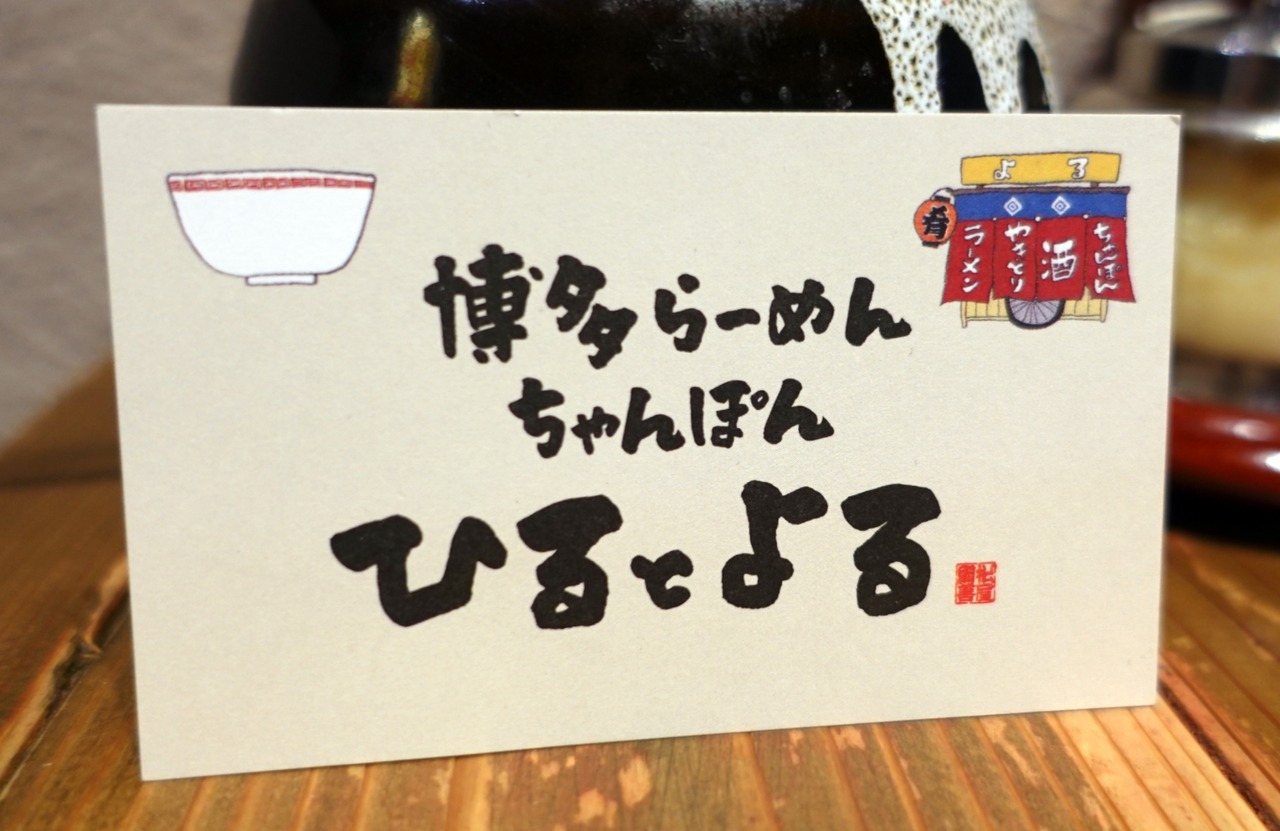 よる
肴
ラーメン
やきとり
酒
ちゃんぽん
博多らーめん
ちゃんぽん
ひるとよる